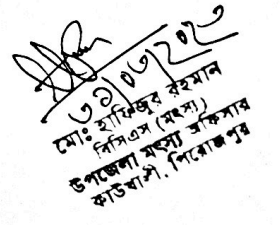 ৩১/০৩/২০২৩
মোঃ হাফিজুর রহমান
বিসিএস (মৎস্য)
উপজেলা মৎস্য অফিসার
কাউখালী, পিরোজপুর